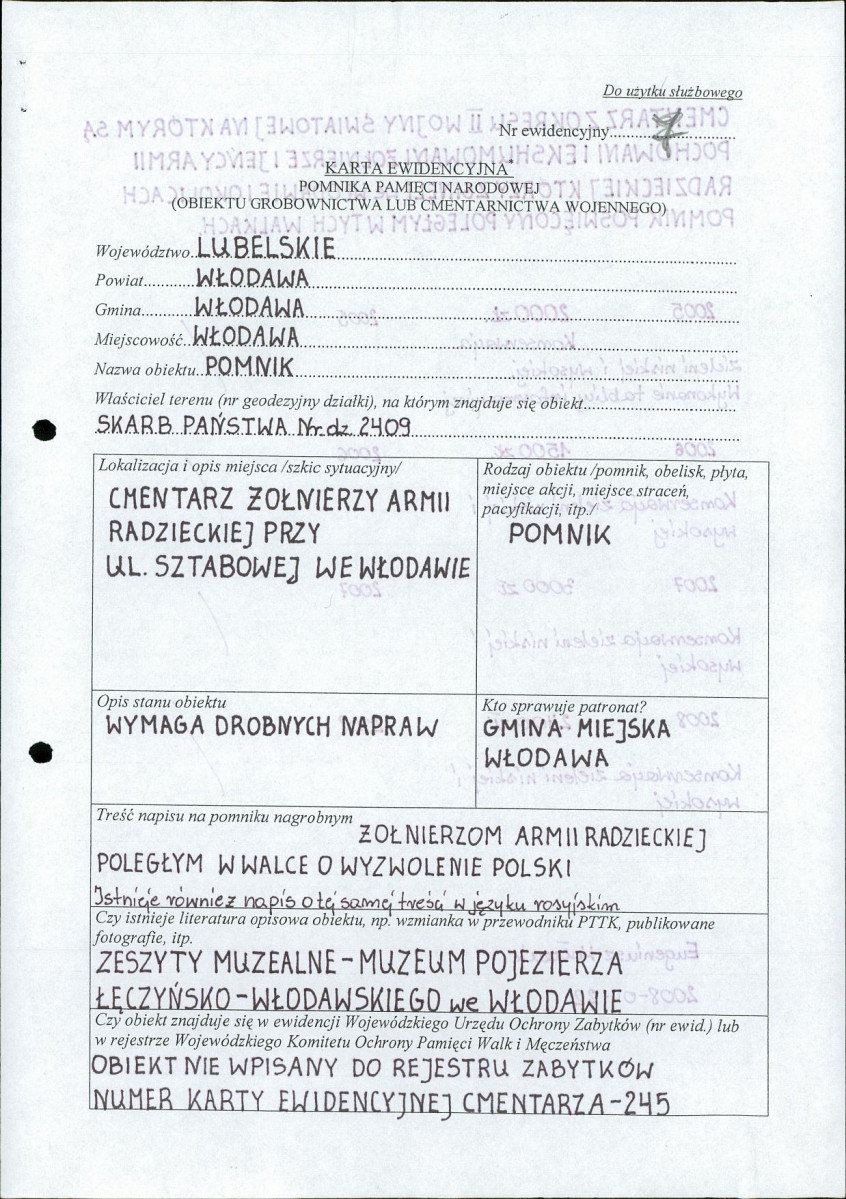 Do użytku służbowego
Nr ewidencyjny..........7..........
KARTA EWIDENCYJNA*
POMNIKA PAMIĘCI NARODOWEJ
(OBIEKTU GROBOWNICTWA LUB CMENTARNICTWA WOJENNEGO)
Województwo LUBELSKIE
Powiat WŁODAWA
Gmina WŁODAWA
Miejscowość WŁODAWA
Nazwa obiektu POMNIK
Właściciel terenu (nr geodezyjny działki), na którym znajduje się obiekt
SKARB PAŃSTWA Nr. dz 2409
Lokalizacja i opis miejsca /szkic sytuacyjny/
CMENTARZ ŻOŁNIERZY ARMII
RADZIECKIEJ PRZY
UL. SZTABOWEJ WE WŁODAWIE
Rodzaj obiektu /pomnik, obelisk, płyta,
miejsce akcji, miejsce straceń,
pacyfikacji, itp./
POMNIK
Opis stanu obiektu
WYMAGA DROBNYCH NAPRAW
Kto sprawuje patronat?
GMINA MIEJSKA
WŁODAWA
Treść napisu na pomniku nagrobnym
ŻOŁNIERZOM ARMII RADZIECKIEJ
POLEGŁYM W WALCE O WYZWOLENIE POLSKI
Istnieje również napis o tej samej treści w języku rosyjskim
Czy istnieje literatura opisowa obiektu, np. wzmianka w przewodniku PTTK, publikowane
fotografie, itp.
ZESZYTY MUZEALNE - MUZEUM POJEZIERZA
ŁĘCZYŃSKO - WŁODAWSKIEGO we WŁODAWIE
Czy obiekt znajduje się w ewidencji Wojewódzkiego Urzędu Ochrony Zabytków (nr ewid.) lub
w rejestrze Wojewódzkiego Komitetu Ochrony Pamięci Walk i Męczeństwa
OBIEKT NIE WPISANY DO REJESTRU ZABYTKÓW
NUMER KARTY EWIDENCYJNEJ CMENTARZA - 245